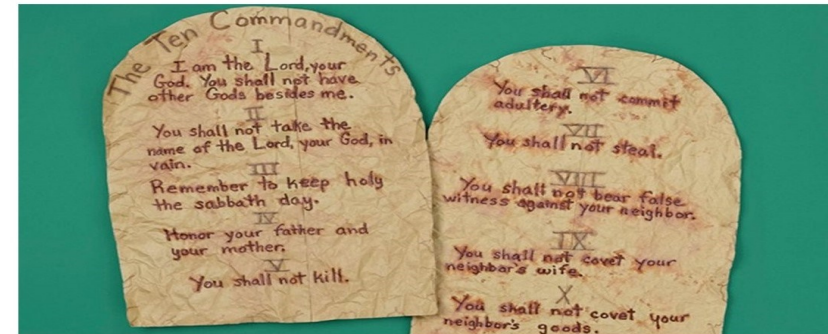 The Ten Commandments
I
I am the Lord, your
God. You shall not have
other Gods besides me.
II
You shall not take the
name of the Lord, your God, in
vain.
III
Remember to keep holy
the sabbath day.
IV
Honor your father and
your mother.
V
You shall not kill.
VI
You shall not commit
adultery.
VII
You shall not steal.
VIII
You shall not bear false
witness against your neighbor.
IX
You shall not covet your
neighbor's wife.
X
You shall not covet your
neighbor's goods.